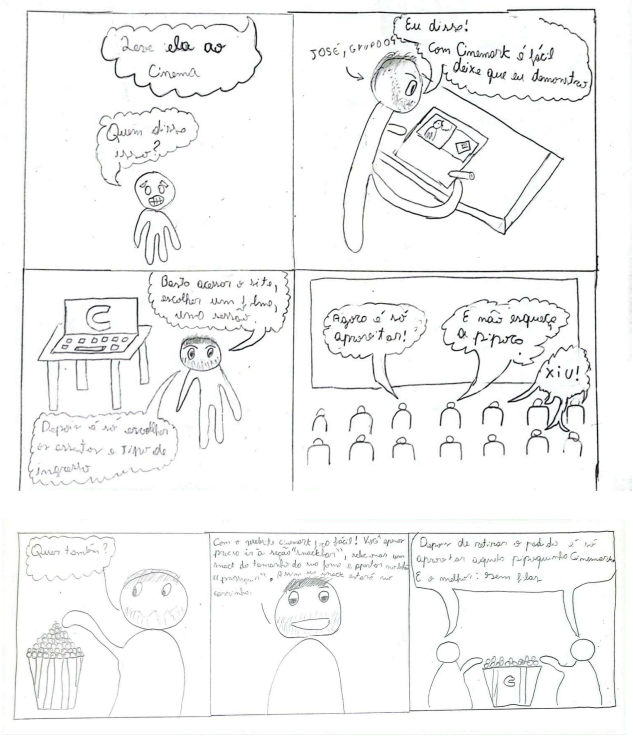 Leve ela ao
Cinema
Quem disse
isso?
JOSÉ, GRUPO 09
Eu disse!
Com Cinemark é fácil
deixe que eu demonstro
Basta acessar o site,
escolher um filme,
uma sessão.
C
Depois é só escolher
os assentos e Tipo de
ingresso
Agora é só
aproveitar!
E não esqueça
a pipoca
XIU!
Quer também?
Com o website cinemark, é fácil! Você apenas
precisa ir à seção "snackbar",
snack do tamanho da sua fome e apertar
"prosseguir". Assim seu snack estará no
carrinho.
Depois de retirar o pedido é só
aproveitar aquela pipoquinha Cinemark
E o melhor: sem filas
C